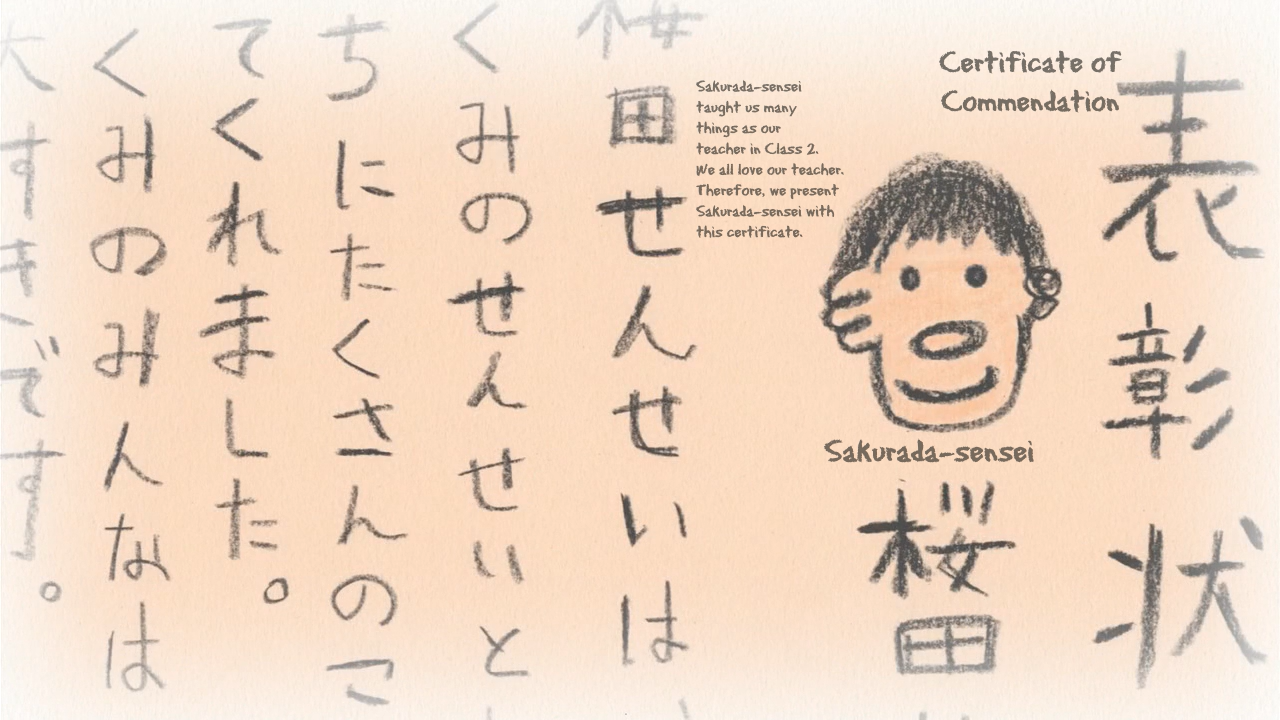 表彰状
Certificate of
Commendation
Sakurada-sensei
桜田
Sakurada-sensei
taught us many
things as our
teacher in Class 2.
We all love our teacher.
Therefore, we present
Sakurada-sensei with
this certificate.
桜田せんせいは
くみのせんせいと
ちにたくさんのこ
てくれました。
くみのみんなは
大すきです。